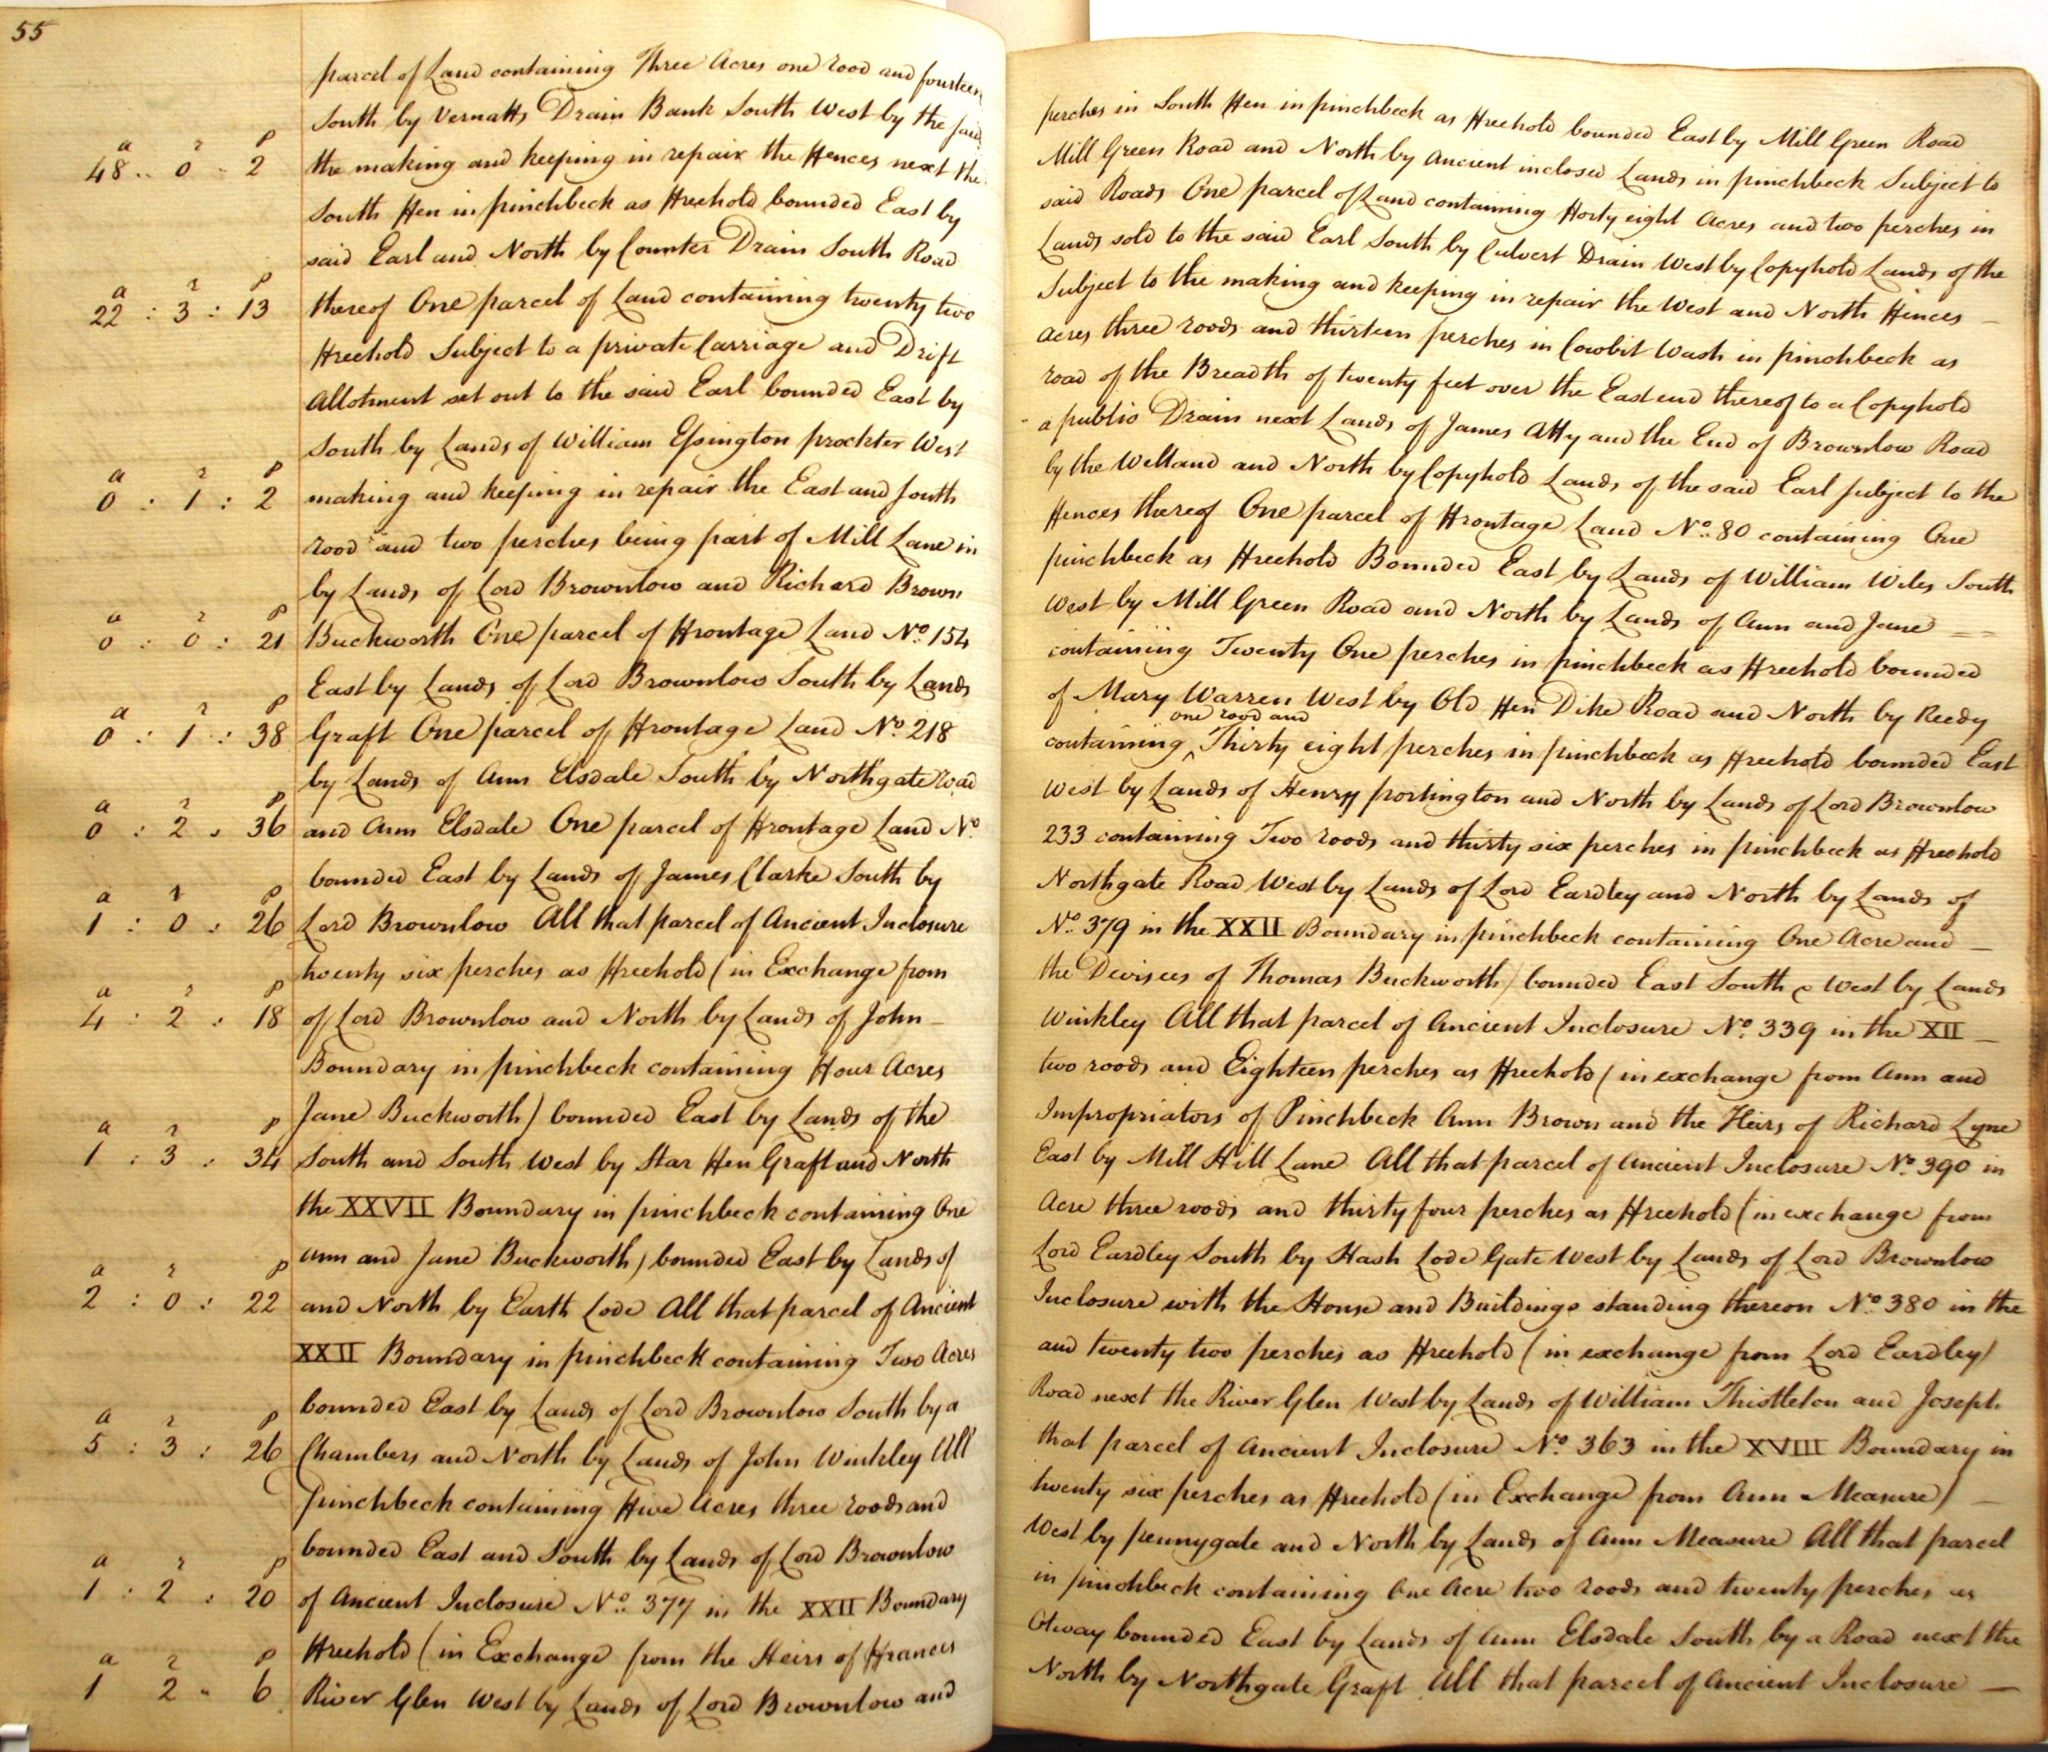 55
parcel of Land containing Three Acres one rood and fourteen perches in South Fen in pinchbeck as Freehold bounded East by Mill Green Road
South by Vernatts Drain Bank South West by the said Mill Green Road and North by Ancient inclosed Lands in pinchbeck Subject to
a r p
48 .. 0 - 2 the making and keeping in repair the Fences next the said Roads One parcel of Land containing Forty eight Acres and two perches in
South Fen in pinchbeck as Freehold bounded East by Lands sold to the said Earl South by Culvert Drain West by Copyhold Lands of the
said Earl and North by Counter Drain South Road Subject to the making and keeping in repair the West and North Fences –
a r p
22 : 3 : 13 thereof One parcel of Land containing twenty two Acres three roods and thirteen perches in Cowbit Wash in pinchbeck as
Freehold Subject to a private Carriage and Drift road of the Breadth of twenty feet over the East end thereof to a Copyhold
Allotment set out to the said Earl bounded East by a public Drain next Lands of James Atty and the End of Brownlow Road
South by Lands of William Essington prockter West by the Welland and North by Copyhold Lands of the said Earl subject to the
a r p
0 : 1 : 2 making and keeping in repair the East and South Fences thereof One parcel of Frontage Land No. 80 containing One
rood and two perches being part of Mill Lane in pinchbeck as Freehold Bounded East by Lands of William Wiles South
by Lands of Lord Brownlow and Richard Brown West by Mill Green Road and North by Lands of Ann and Jane – –
a r p
0 : 0 : 21 Buckworth One parcel of Frontage Land No. 154 containing Twenty One perches in pinchbeck as Freehold bounded
East by Lands of Lord Brownlow South by Lands of Mary Warren West by Old Fen Dike Road and North by Reedy
a r p
one rood and
0 : 1 : 38 Graft One parcel of Frontage Land No. 218 containing ^ Thirty eight perches in pinchbeck as Freehold bounded East
by Lands of Ann Elsdale South by Northgate road West by Lands of Henry portington and North by Lands of Lord Brownlow
a r p
0 : 2 : 36 and Ann Elsdale One parcel of Frontage Land No. 233 containing Two roods and thirty six perches in pinchbeck as Freehold
bounded East by Lands of James Clarke South by Northgate Road West by Lands of Lord Eardley and North by Lands of
a r p
1 : 0 : 26 Lord Brownlow All that parcel of Ancient Inclosure No. 379 in the XXII Boundary in pinchbeck containing One Acre and –
twenty six perches as Freehold (in Exchange from the Devisees of Thomas Buckworth) bounded East South & West by Lands
a r p
4 : 2 : 18 of Lord Brownlow and North by Lands of John – Winkley All that parcel of Ancient Inclosure No. 339 in the XII –
Boundary in pinchbeck containing Four Acres two roods and Eighteen perches as Freehold (in exchange from Ann and
Jane Buckworth) bounded East by Lands of the Impropriators of Pinchbeck Ann Brown and the Heirs of Richard Lyne
a r p
1 : 3 : 34 South and South West by Star Fen Graft and North East by Mill Hill Lane All that parcel of Ancient Inclosure No. 390 in
the XXVII Boundary in pinchbeck containing One Acre three roods and thirty four perches as Freehold (in exchange from
Ann and Jane Buckworth) bounded East by Lands of Lord Eardley South by Hash Lode Gate West by Lands of Lord Brownlow
a r p
2 : 0 : 22 and North by Earth Lode All that parcel of Ancient Inclosure with the House and Buildings standing thereon No. 380 in the
XXII Boundary in pinchbeck containing Two Acres and twenty two perches as Freehold (in exchange from Lord Eardley)
bounded East by Lands of Lord Brownlow South by a Road next the River Glen West by Lands of William Thistleton and Joseph
a r p
5 : 3 : 26 Chambers and North by Lands of John Winkley All that parcel of Ancient Inclosure No. 363 in the XVIII Boundary in
pinchbeck containing Five Acres three roods and twenty six perches as Freehold (in Exchange from Ann Measure) –
bounded East and South by Lands of Lord Brownlow West by pennygate and North by Lands of Ann Measure All that parcel
a r p
1 : 2 : 20 of Ancient Inclosure No. 377 in the XXII Boundary in pinchbeck containing One Acre two roods and twenty perches as
Freehold (in Exchange from the Heirs of Francis Otway bounded East by Lands of Ann Elsdale South by a Road next the
a r p
1 2 - 6 River Glen West by Lands of Lord Brownlow and North by Northgate Graft All that parcel of Ancient Inclosure –